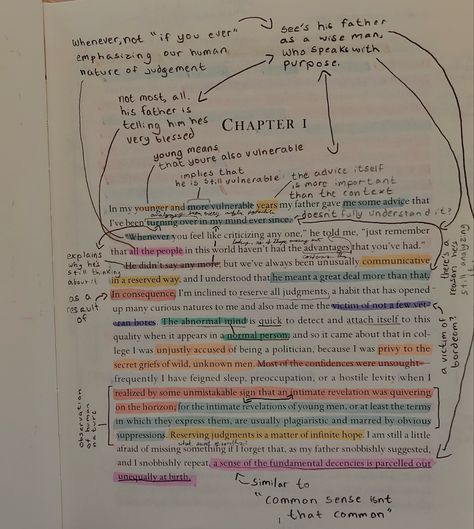 Whenever, not "if you ever"
emphasizing our human
nature of judgement
see's his father
as a wise man,
who speaks with
purpose.
not most, all.
his father is
telling him hes
very blessed
CHAPTER I
young means
that youre also vulnerable
implies that
he is still vulnerable
the advice itself
is more important
than the context
In my younger and more vulnerable years my father gave me some advice that
I've been turning over in my mind ever since.
doesnt fully understand it?
"Whenever you feel like criticizing any one," he told me, "just remember
that all the people in this world haven't had the advantages that you've had."
He didn't say any more, but we've always been unusually communicative
in a reserved way, and I understood that he meant a great deal more than that.
In consequence, I'm inclined to reserve all judgments, a habit that has opened
up many curious natures to me and also made me the victim of not a few vet-
eran bores. The abnormal mind is quick to detect and attach itself to this
quality when it appears in a normal person, and so it came about that in col-
lege I was unjustly accused of being a politician, because I was privy to the
secret griefs of wild, unknown men. Most of the confidences were unsought—
frequently I have feigned sleep, preoccupation, or a hostile levity when I
realized by some unmistakable sign that an intimate revelation was quivering
on the horizon; for the intimate revelations of young men, or at least the terms
in which they express them, are usually plagiaristic and marred by obvious
suppressions. Reserving judgments is a matter of infinite hope. I am still a little
afraid of missing something if I forget that, as my father snobbishly suggested,
and I snobbishly repeat, a sense of the fundamental decencies is parcelled out
unequally at birth.
explains
why he's
still thinking
about it
as a
result
of
observation
of human
nature
there's a
reason he's
still analyzing
it
a victim of
bordeom?
similar to
"common sense isnt
that common"